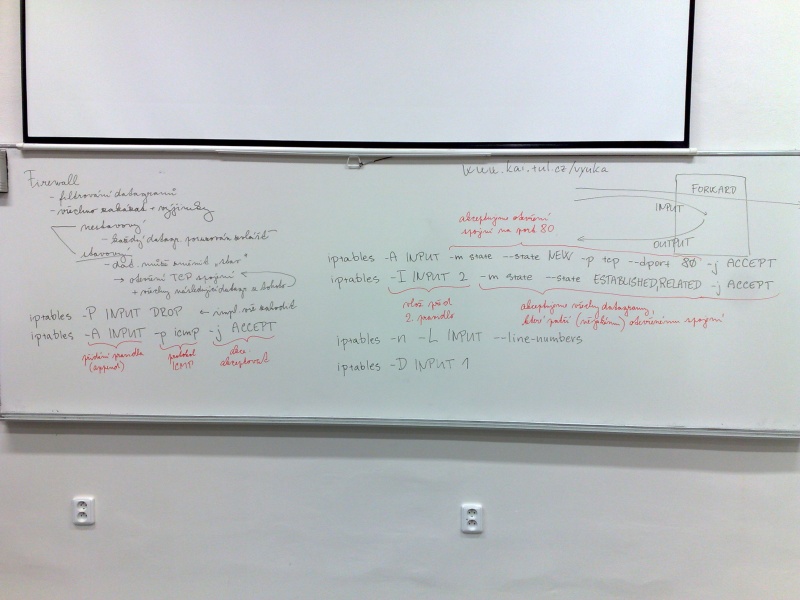 Firewall
- filtrování datagramů
- všechno zakázat + výjimky
nestavový
- každý datagr. posuzován zvlášť
stavový
- dat. může změnit „stav“
→ otevření TCP spojení
+ všechny následující datagr. z tohoto
iptables -P INPUT DROP ← impl. vše zahodit
iptables -A INPUT -p icmp -j ACCEPT
přidání pravidla
(append)
protokol
ICMP
akce
akceptovat
www.kai.tul.cz/vyuka
FORWARD
INPUT
OUTPUT
akceptujeme otevření
spojení na port 80
iptables -A INPUT -m state --state NEW -p tcp --dport 80 -j ACCEPT
iptables -I INPUT 2 -m state --state ESTABLISHED,RELATED -j ACCEPT
vlož před
2. pravidlo
akceptujeme všechny datagramy,
které patří (nějakému) otevřenému spojení
iptables -n -L INPUT --line-numbers
iptables -D INPUT 1